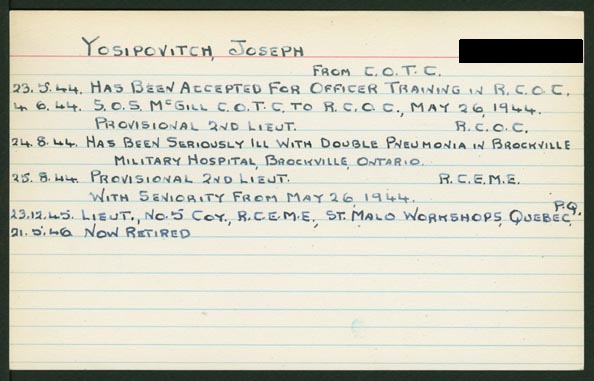 YOSIPOVITCH, JOSEPH
FROM C.O.T.C.
23.5.44. HAS BEEN ACCEPTED FOR OFFICER TRAINING IN R.C.O.C.
4.6.44. S.O.S. McGILL C.O.T.C. TO R.C.O.C., MAY 26, 1944.
PROVISIONAL 2ND LIEUT. R.C.O.C.
24.8.44. HAS BEEN SERIOUSLY ILL WITH DOUBLE PNEUMONIA IN BROCKVILLE
MILITARY HOSPITAL, BROCKVILLE, ONTARIO.
25.8.44. PROVISIONAL 2ND LIEUT. R.C.E.M.E.
WITH SENIORITY FROM MAY 26, 1944.
23.12.45. LIEUT., NO. 5 COY., R.C.E.M.E., ST. MALO WORKSHOPS, QUEBEC, P.Q.
21.5.46. NOW RETIRED